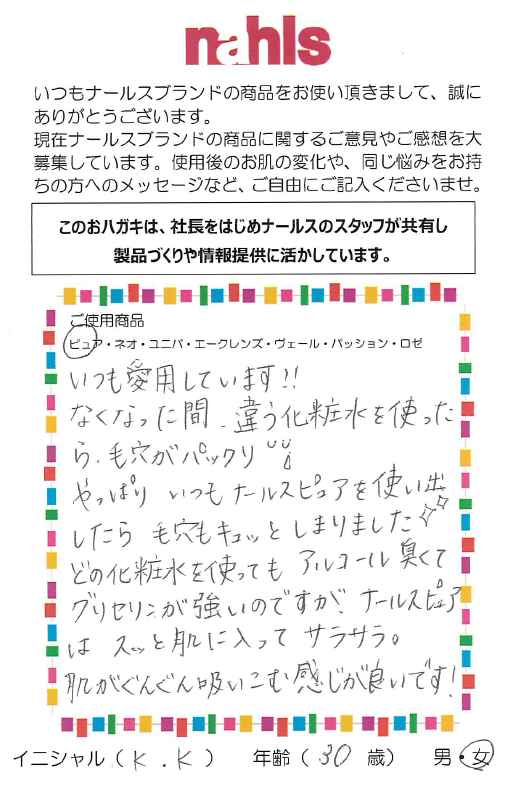 nahls
いつもナールスブランドの商品をお使い頂きまして、誠に
ありがとうございます。
現在ナールスブランドの商品に関するご意見やご感想を大
募集しています。使用後のお肌の変化や、同じ悩みをお持
ちの方へのメッセージなど、ご自由にご記入くださいませ。
このおハガキは、社長をはじめナールスのスタッフが共有し
製品づくりや情報提供に活かしています。
ご使用商品
ピュア・ネオ・ユニバ・エークレンズ・ヴェール・パッション・ロゼ
いつも愛用しています!!
なくなった間、違う化粧水を使った
ら、毛穴がパックリ
やっぱり いつもナールスピュアを使い出
したら 毛穴もキュッとしまりました
どの化粧水を使っても アルコール臭くて
グリセリンが強いのですが、ナールスピュア
は スッと肌に入って サラサラ。
肌がぐんぐん吸いこむ感じが良いです!
イニシャル ( K . K ) 年齢 ( 30 歳) 男・女